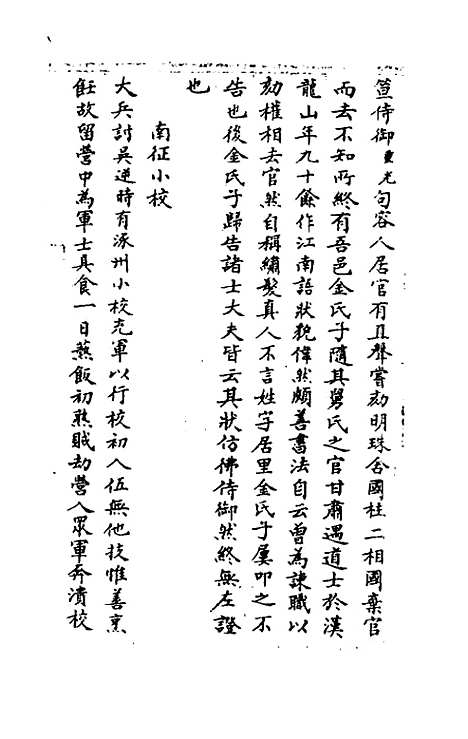 笪侍御重光句容人居官有直聲嘗劾明珠余國柱二相國棄官
而去不知所終有吾邑金氏子隨其舅氏之官甘肅遇道士於漢
龍山年九十餘作江南語狀貌偉然頗善書法自云曾為諫職以
劾權相去官然自稱繡髮真人不言姓字居里金氏子屢叩之不
告也後金氏子歸告諸士大夫皆云其狀仿彿侍御然終無左證
也
南征小校
大兵討吳逆時有涿州小校充軍以行校初入伍無他技惟善烹
飪故留營中為軍士具食一日蒸飯初熟賊劫營入眾軍奔潰校